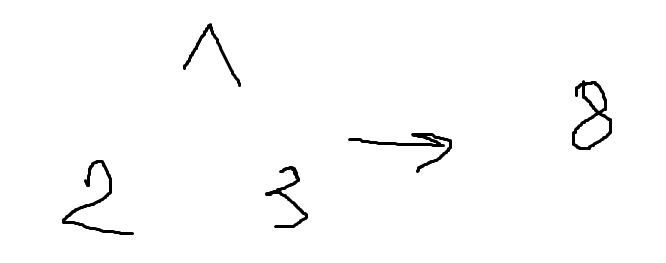 ^
2 3 → 8